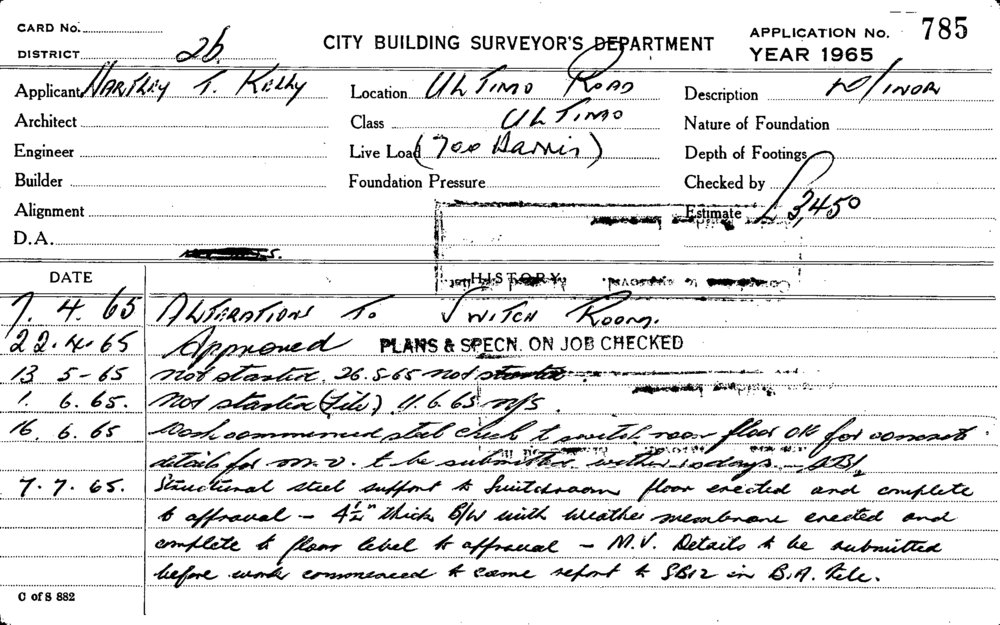 CARD No.
DISTRICT 2b.
CITY BUILDING SURVEYOR'S DEPARTMENT
APPLICATION No. 785
YEAR 1965
Applicant Hartley T. Kelly
Location ULTIMO ROAD
Description Minor
Architect
Class ULTIMO
Nature of Foundation
Engineer
Live Load (700 Harris)
Depth of Footings
Builder
Foundation Pressure
Checked by
Alignment
Estimate £3,450
D.A.
DATE
HISTORY
7. 4. 65 ALTERATIONS TO SWITCH ROOM.
22.4.65 Approved PLANS & SPECN. ON JOB CHECKED
13 5-65 not started. 26.5-65 not started.
1. 6.65. not started (File) 11.6.65 n/s.
16. 6.65 Work commenced steel check to switch room floor OK for concrete
details for m.v. to be submitted within days
7.7.65. Structural steel support to Switchroom floor erected and complete
to approval – 4½" thick B/W with weather membrane erected and
complete to floor level to approval – M.V. Details to be submitted
before work commenced to same report to SB12 in B.A. File.
C of S 882